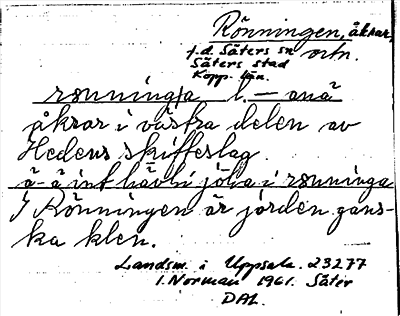 Rönningen, åkrar,
f.d. Säters sn
Säters stad
Kopp. län.
rønning/a l. — anä
åkrar i västra delen av
Hedens skifteslag.
I Rönningen är jorden gans-
ka klen.
Landsm. i Uppsala. 23277
I. Norman 1961. Säter
DAL.